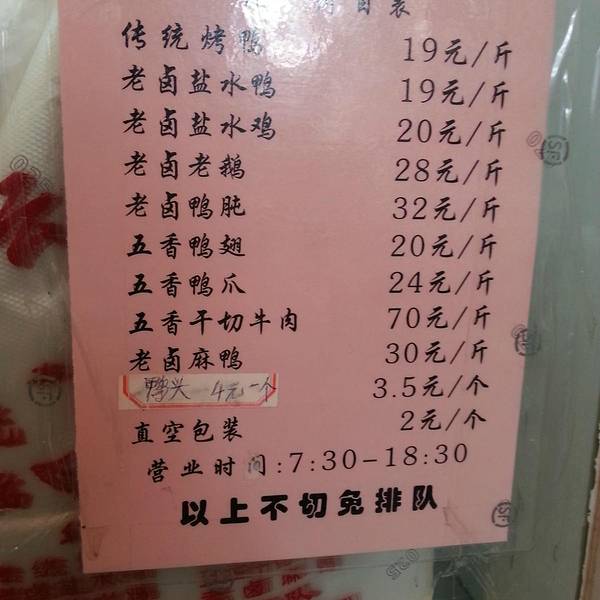 传统烤鸭 19元/斤
老卤盐水鸭 19元/斤
老卤盐水鸡 20元/斤
老卤老鹅 28元/斤
老卤鸭肫 32元/斤
五香鸭翅 20元/斤
五香鸭爪 24元/斤
五香干切牛肉 70元/斤
老卤麻鸭 30元/斤
鸭兴 4元一个 3.5元/个
直空包装 2元/个
营业时间:7:30-18:30
以上不切免排队